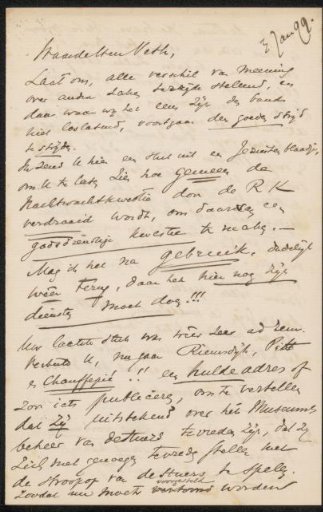 3 Jan 99.
Waarde Heer Veth,
Laat ons, alle verschil van meening
over andere zaken terzijde stellend, en
daar waar wij het eens zijn de hand
niet loslatend, voortgaan den goeden strijd
te strijden.
Ik zend U hier een stuk uit een
om U te laten zien hoe gemeen de
Nachtwachtkwestie door de R K
verdraaid wordt, om daarvan een
godsdienstige kwestie te maken. —
Mag ik het na gebruik, dadelijk
weer terug, daar het hier nog zijn
diensten moet doen!!!
Uw laatste stuk was weer zeer ad rem.
U, nu gaan Riemsdijk, Pitt
en !! een hulde adres of
zoo iets publiceren, om te vertellen
dat zij uitstekend over het Museum
beheer van de Stuers tevreden zijn, dat zij
zich met genoegen tevreden stellen met
de strooppop van de Stuers te spelen.
Zoodat nu moet voorgesteld worden